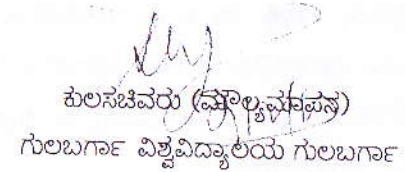 ಕುಲಸಚಿವರು (ಮೌಲ್ಯಮಾಪನ)
ಗುಲಬರ್ಗಾ ವಿಶ್ವವಿದ್ಯಾಲಯ ಗುಲಬರ್ಗಾ